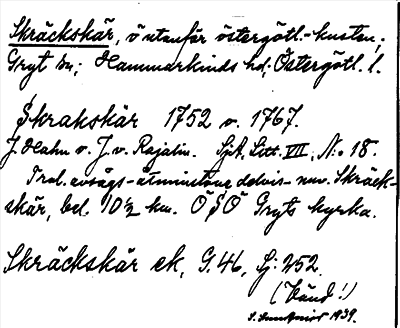 Skräckskär, ö utanför östergötl.-kusten;
Gryt sn; Hammarkinds hd; Östergötl. l.
Skrakskär 1752 o. 1767.
J. Hahn o. J. v. Rajalin. SjA, Litt. VII, N:o 18.
Trol. avsågs - åtminstone delvis - nuv. Skräck-
skär, bel. 10½ km. ÖSÖ Gryts kyrka.
Skräckskär ek, G. 46, Lj: 252.
(Vänd!)
1939.